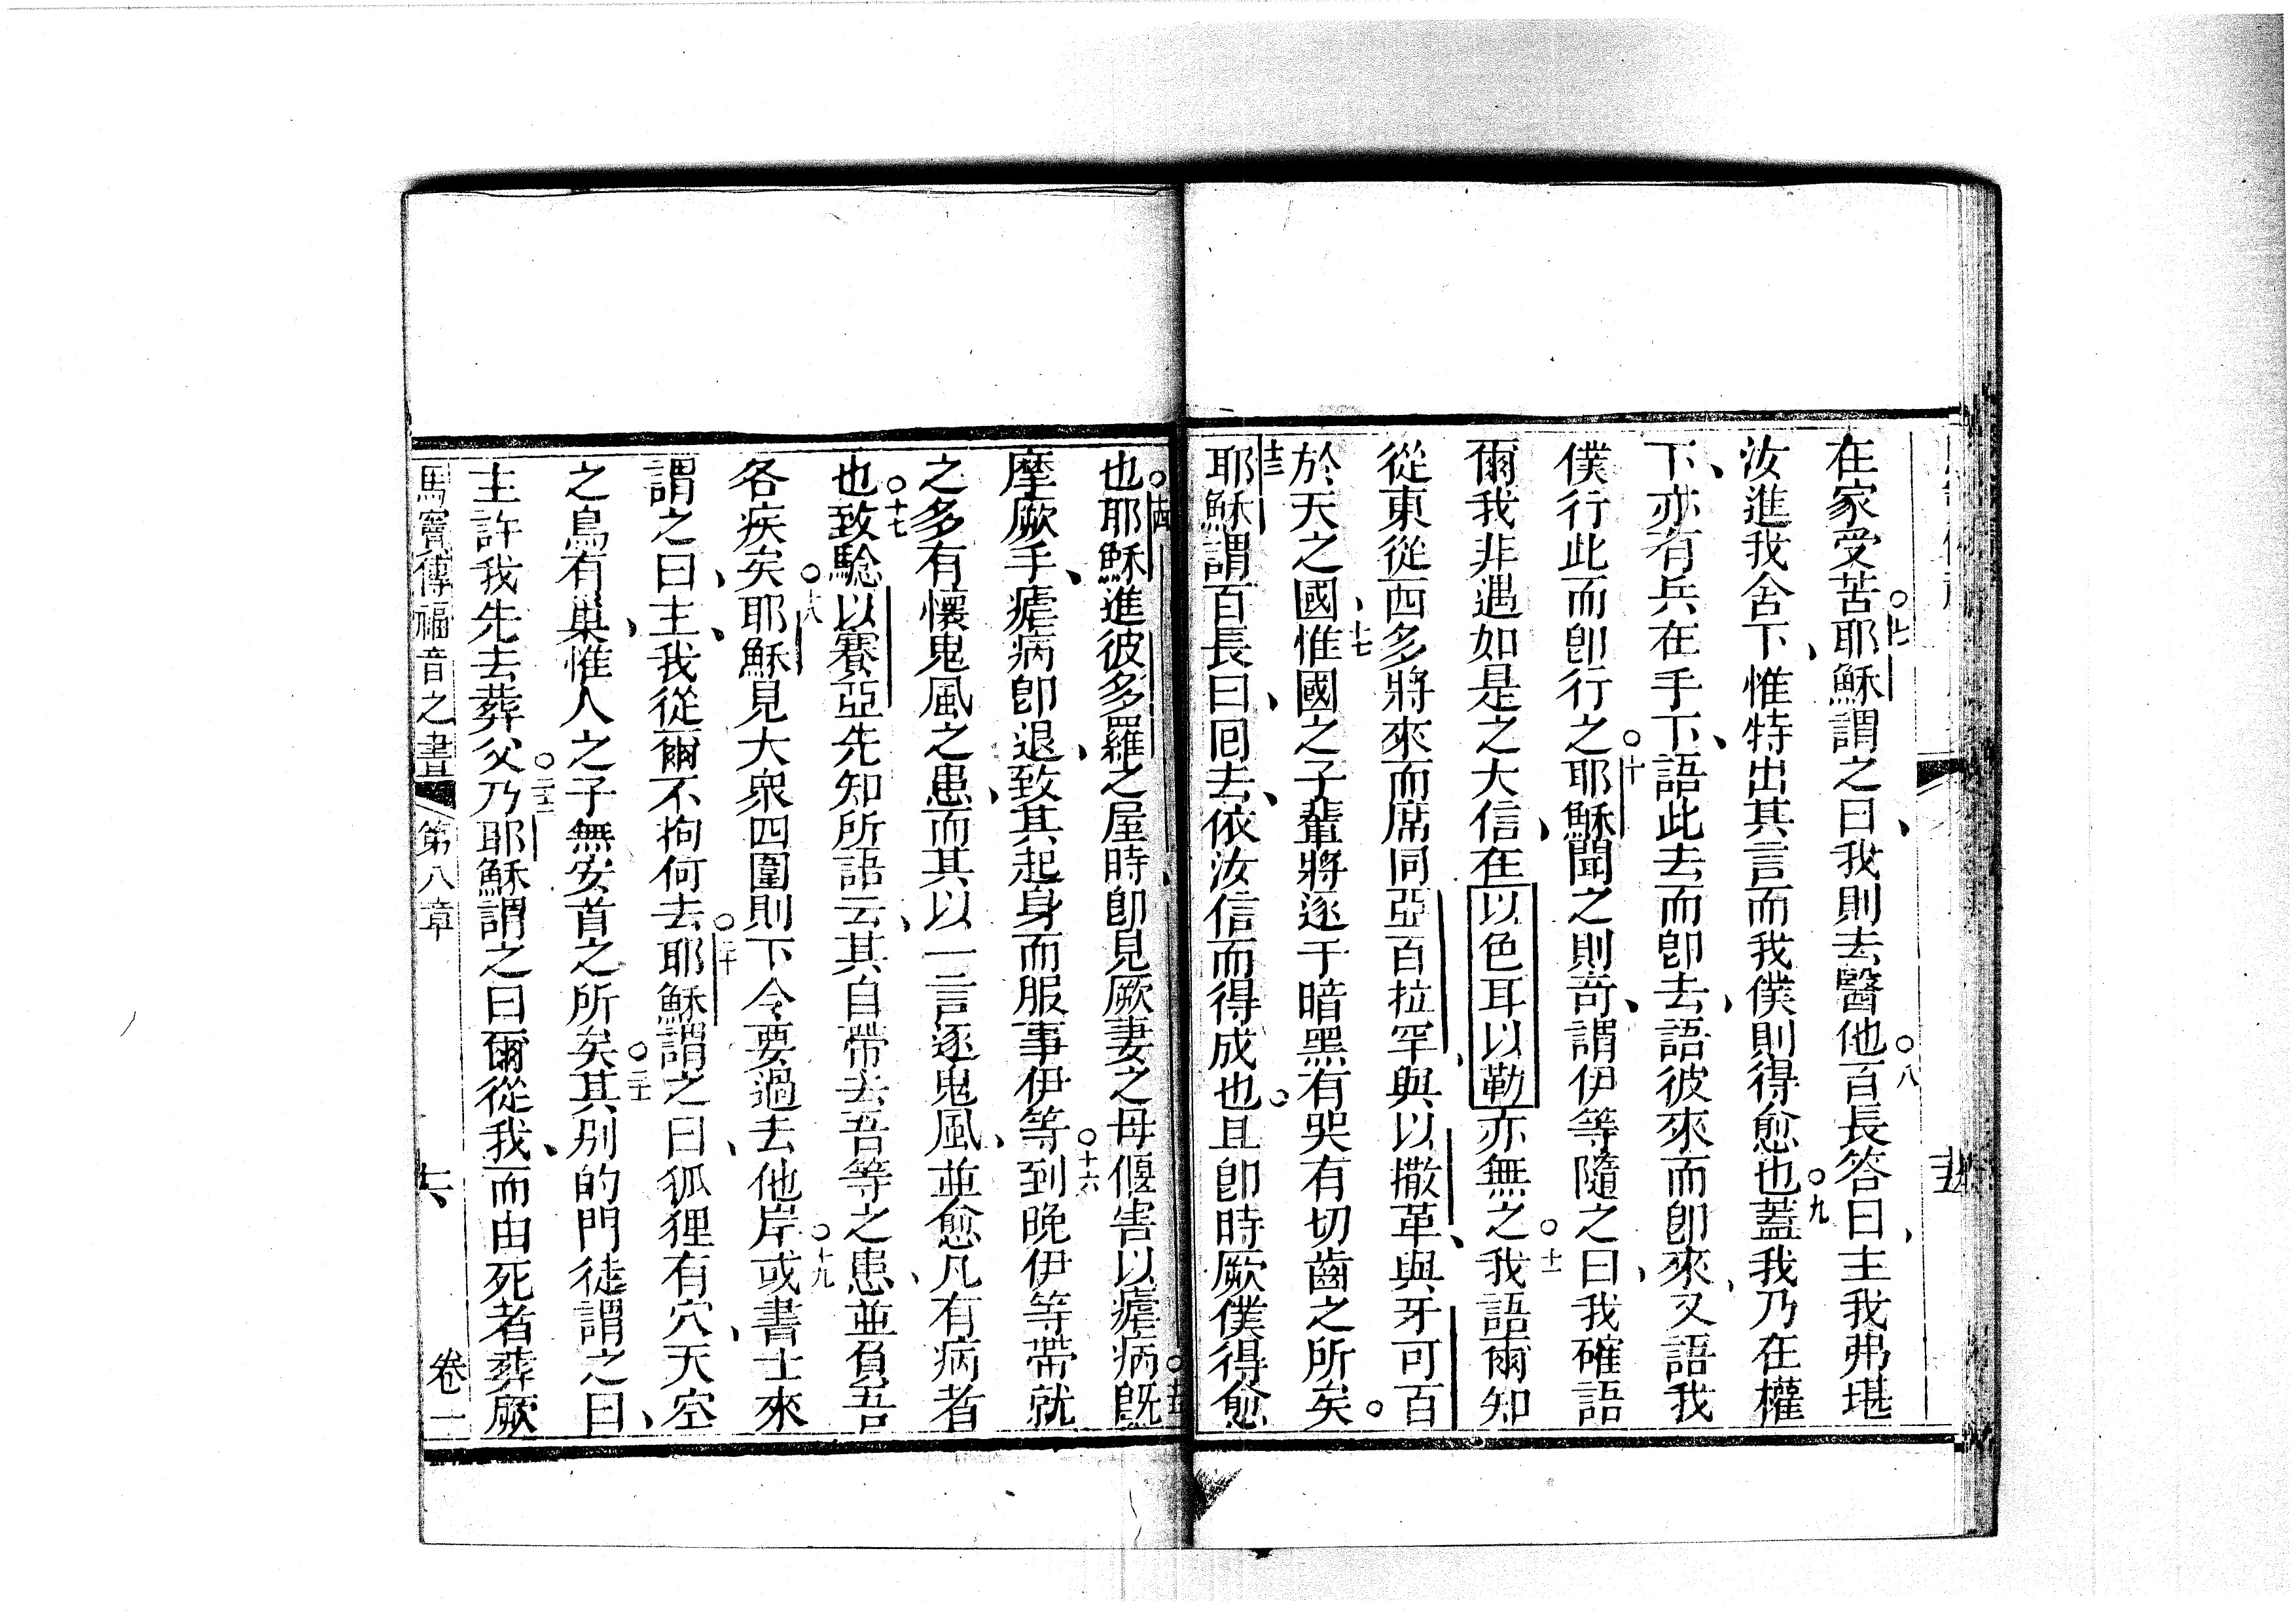 在家受苦○七耶穌謂之曰、我則去醫他○八百長答曰、主我弗堪
汝進我舍下、惟特出其言而我僕則得愈也○九蓋我乃在權
下、亦有兵在手下、語此去而卽去、語彼來而卽來、又語我
僕行此而卽行之○十耶穌聞之則奇、謂伊等隨之曰、我確語
爾我非遇如是之大信、在以色耳以勒亦無之○十一我語爾知
從東從西多將來而席同亞百拉罕、與以撒革、與牙可百
於天之國、十七惟國之子輩將逐于暗黑有哭有切齒之所矣。
耶穌謂百長曰、囘去、依汝信而得成也。且卽時厥僕得愈
也○十四耶穌進彼多羅之屋時、卽見厥妻之母偃害以瘧病○十五旣
摩厥手、瘧病卽退、致其起身而服事伊等○十六到晚伊等帶就
之多有懷鬼風之患、而其以一言逐鬼風、並愈凡有病者
也○十七致騐以賽亞先知所語云、其自帶去吾等之患、並負吾
各疾矣○十八耶穌見大衆四圍則下令要過去他岸○十九或書士來
謂之曰、主、我從爾不拘何去○二十耶穌謂之曰、狐狸有穴、天空
之鳥有巢、惟人之子無安首之所矣○二十一其別的門徒謂之曰、
主許我先去葬父○二十二乃耶穌謂之曰爾從我、而由死者葬厥
馬竇傳福音之書 第八章 六 卷一